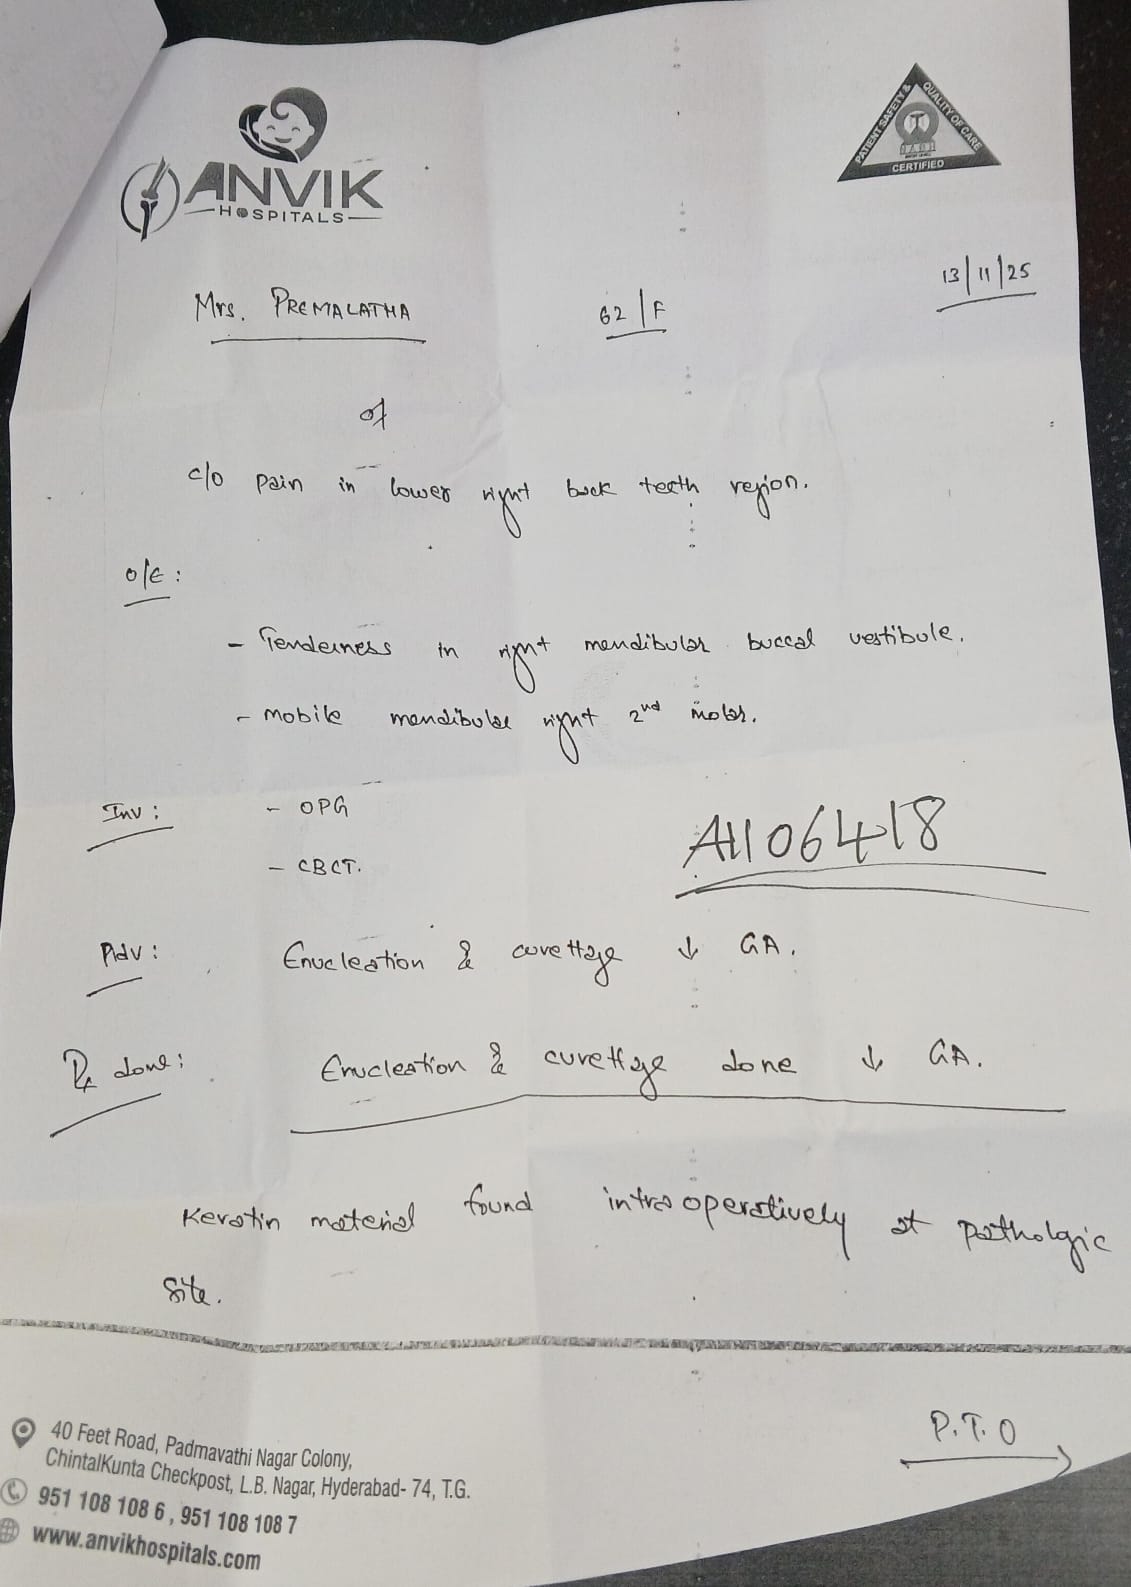 ANVIK
HOSPITALS
PATIENT SAFETY & QUALITY OF CARE
CERTIFIED
13/11/25
Mrs. PREMALATHA 62/F
c/o pain in lower right back teeth region.
O/E:
- Tenderness in right mandibular buccal vestibule.
- mobile mandibular right 2nd molar.
Inv: - OPG
- CBCT.
A1106418
Adv: Enucleation & curettage ↓ GA.
Rx done: Enucleation & curettage done ↓ GA.
Keratin material found intra operatively at pathologic
site.
P.T.O
40 Feet Road, Padmavathi Nagar Colony,
ChintalKunta Checkpost, L.B. Nagar, Hyderabad- 74, T.G.
951 108 108 6, 951 108 108 7
www.anvikhospitals.com